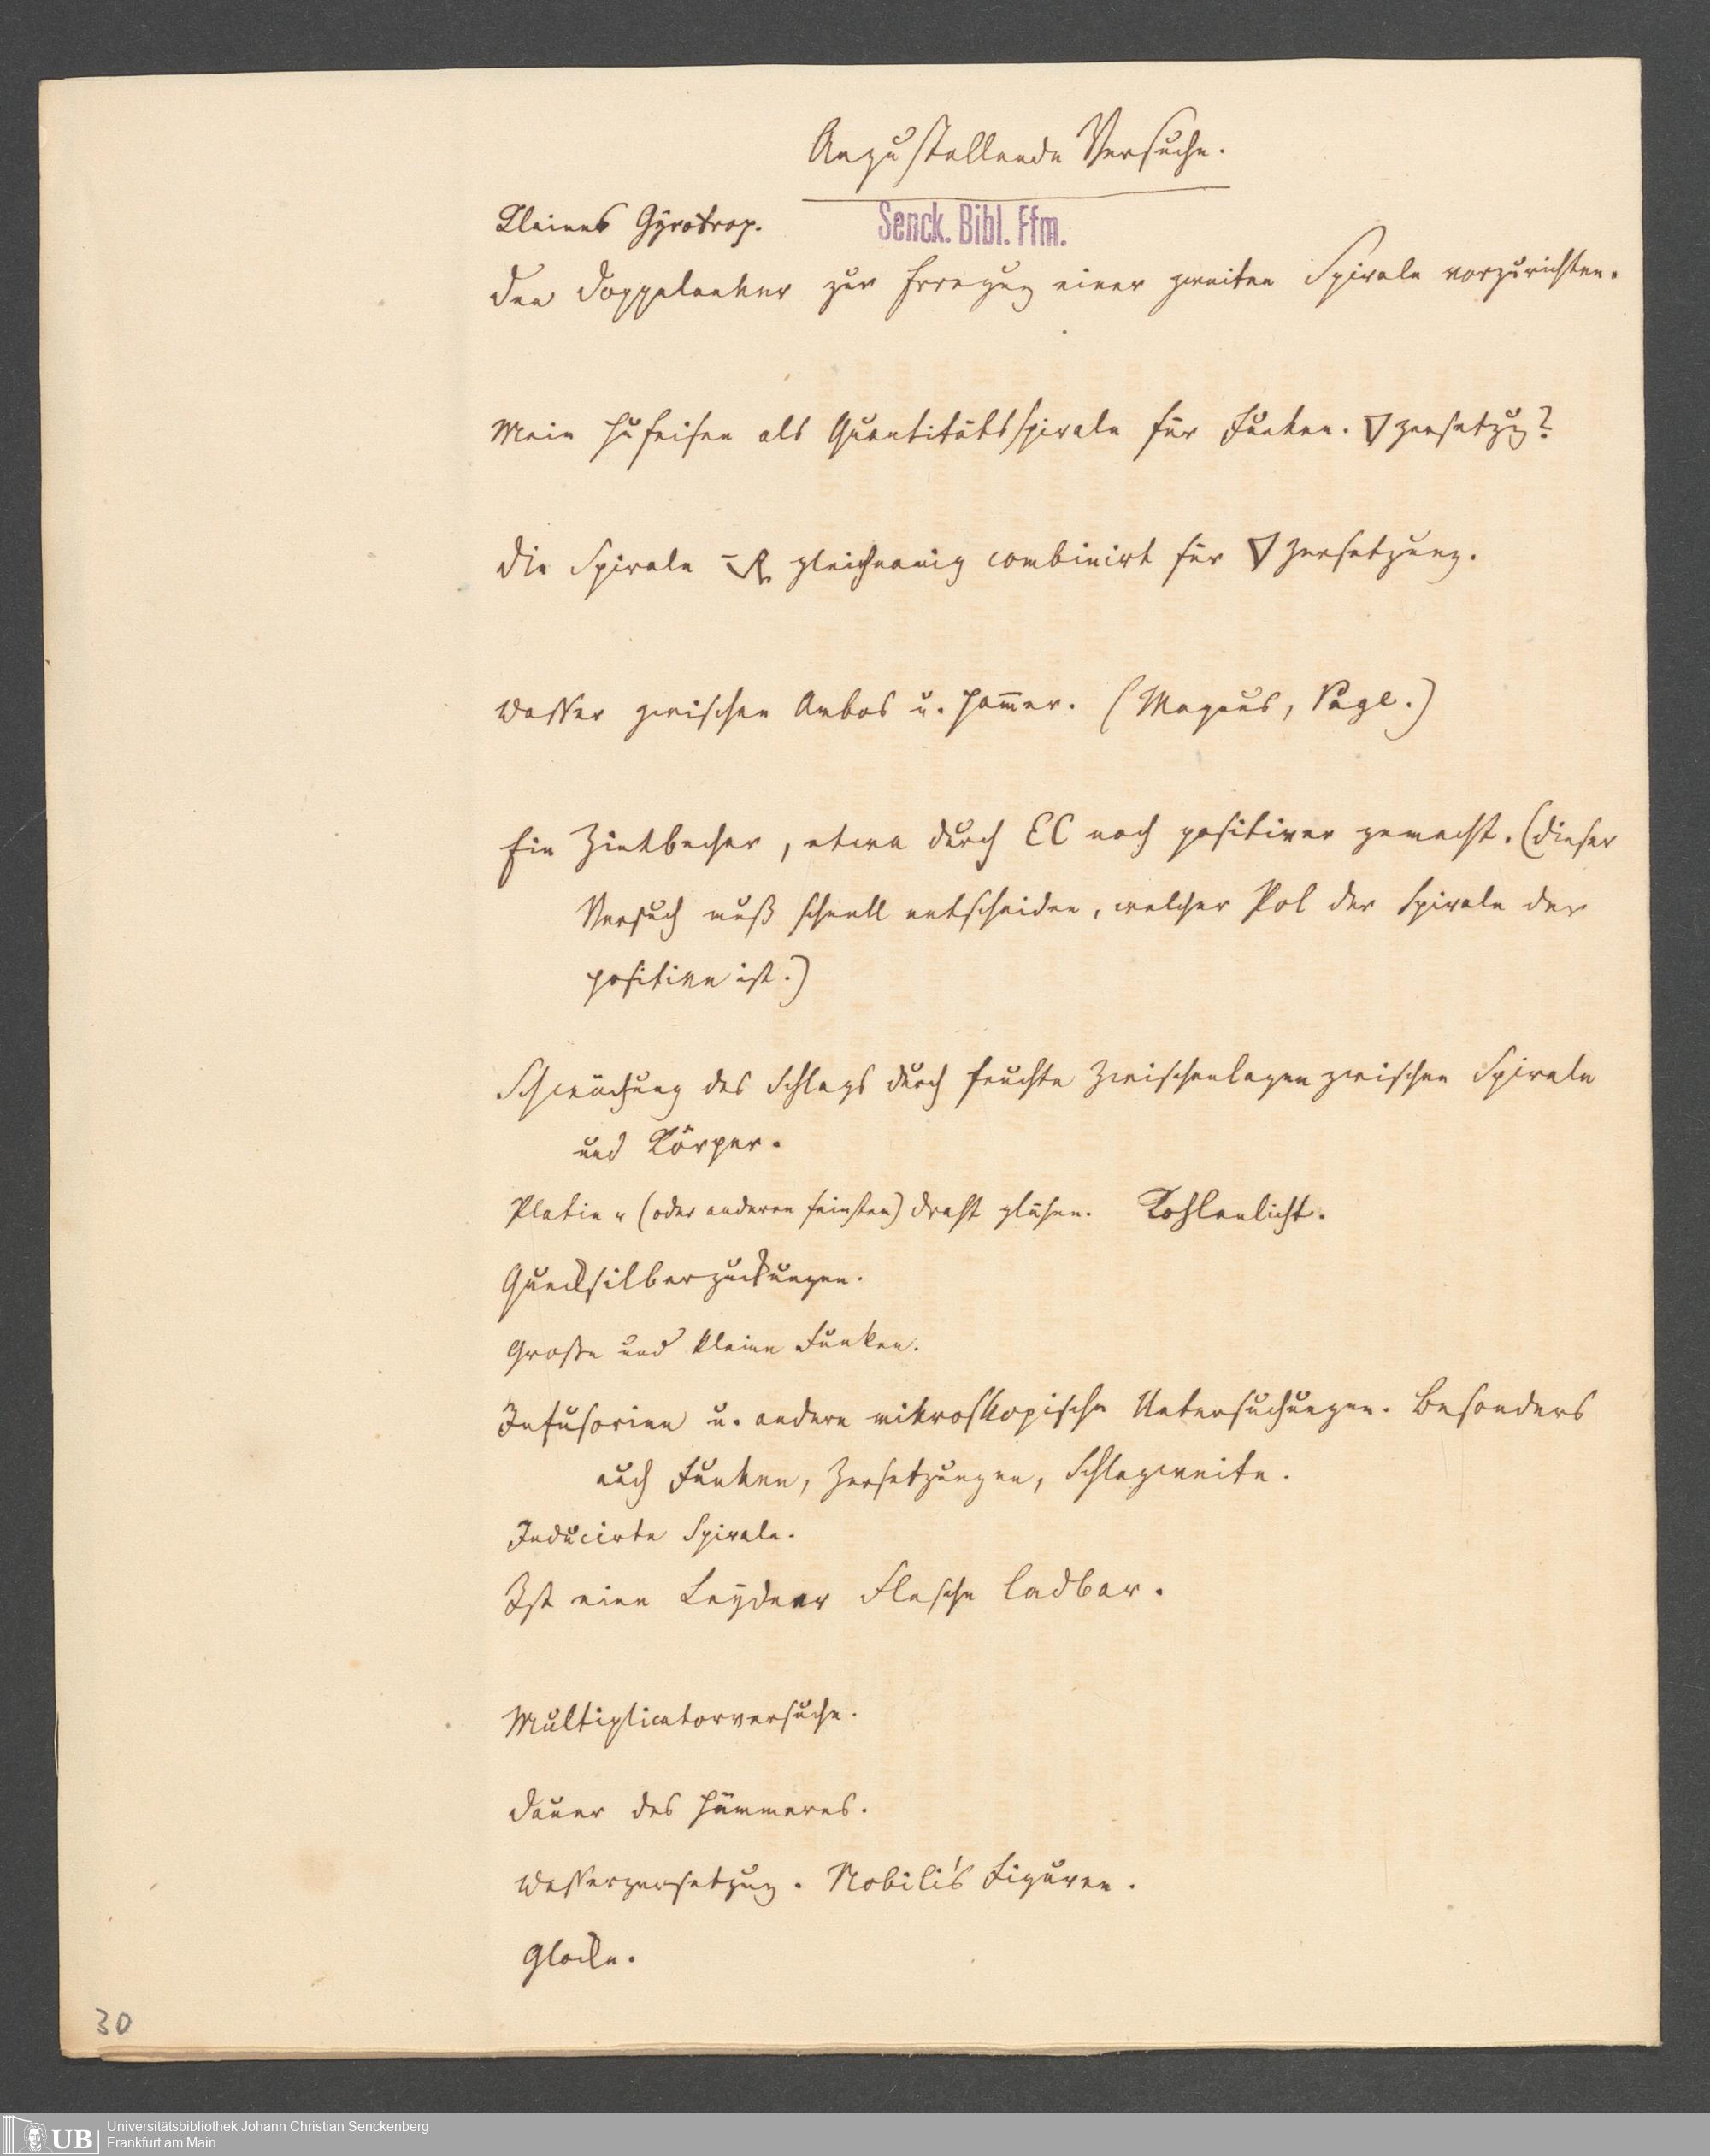 Anzustellende Versuche.
Senck. Bibl. Ffm.
Kleines Gÿrotrop.
Den Doppelanker zur Erregung einer zweiten Spirale vorzurichten.
Mein Hufeisen als Quantitätsspirale für Funken. ▽zersetzg?
Die Spirale gleichnamig combinirt für ▽Zersetzung.
Wasser zwischen Ambos u. Ham̅er. (Magnus, Pogg.)
Ein Zinkbecher, etwa durch EC noch positiver gemacht. (Dieser
Versuch muß schnell entscheiden, welcher Pol der Spirale der
positive ist.)
Schwächung des Schlags durch feuchte Zwischenlagen zwischen Spirale
und Körper.
Platin- (oder anderen feinsten) Draht glühen. Kohlenlicht.
Quecksilberzuckungen.
Große und kleine Funken.
Infusorien u. andere mikroskopische Untersuchungen. Besonders
auch Funken, Zersetzungen, Schlagweite.
Inducirte Spirale.
Ist eine Leÿdner Flasche ladbar.
Multiplicatorversuche.
Dauer des Hämmerns.
Wasserzersetzung. Nobili's Figuren.
Glocke.
30
UB Universitätsbibliothek Johann Christian Senckenberg
Frankfurt am Main